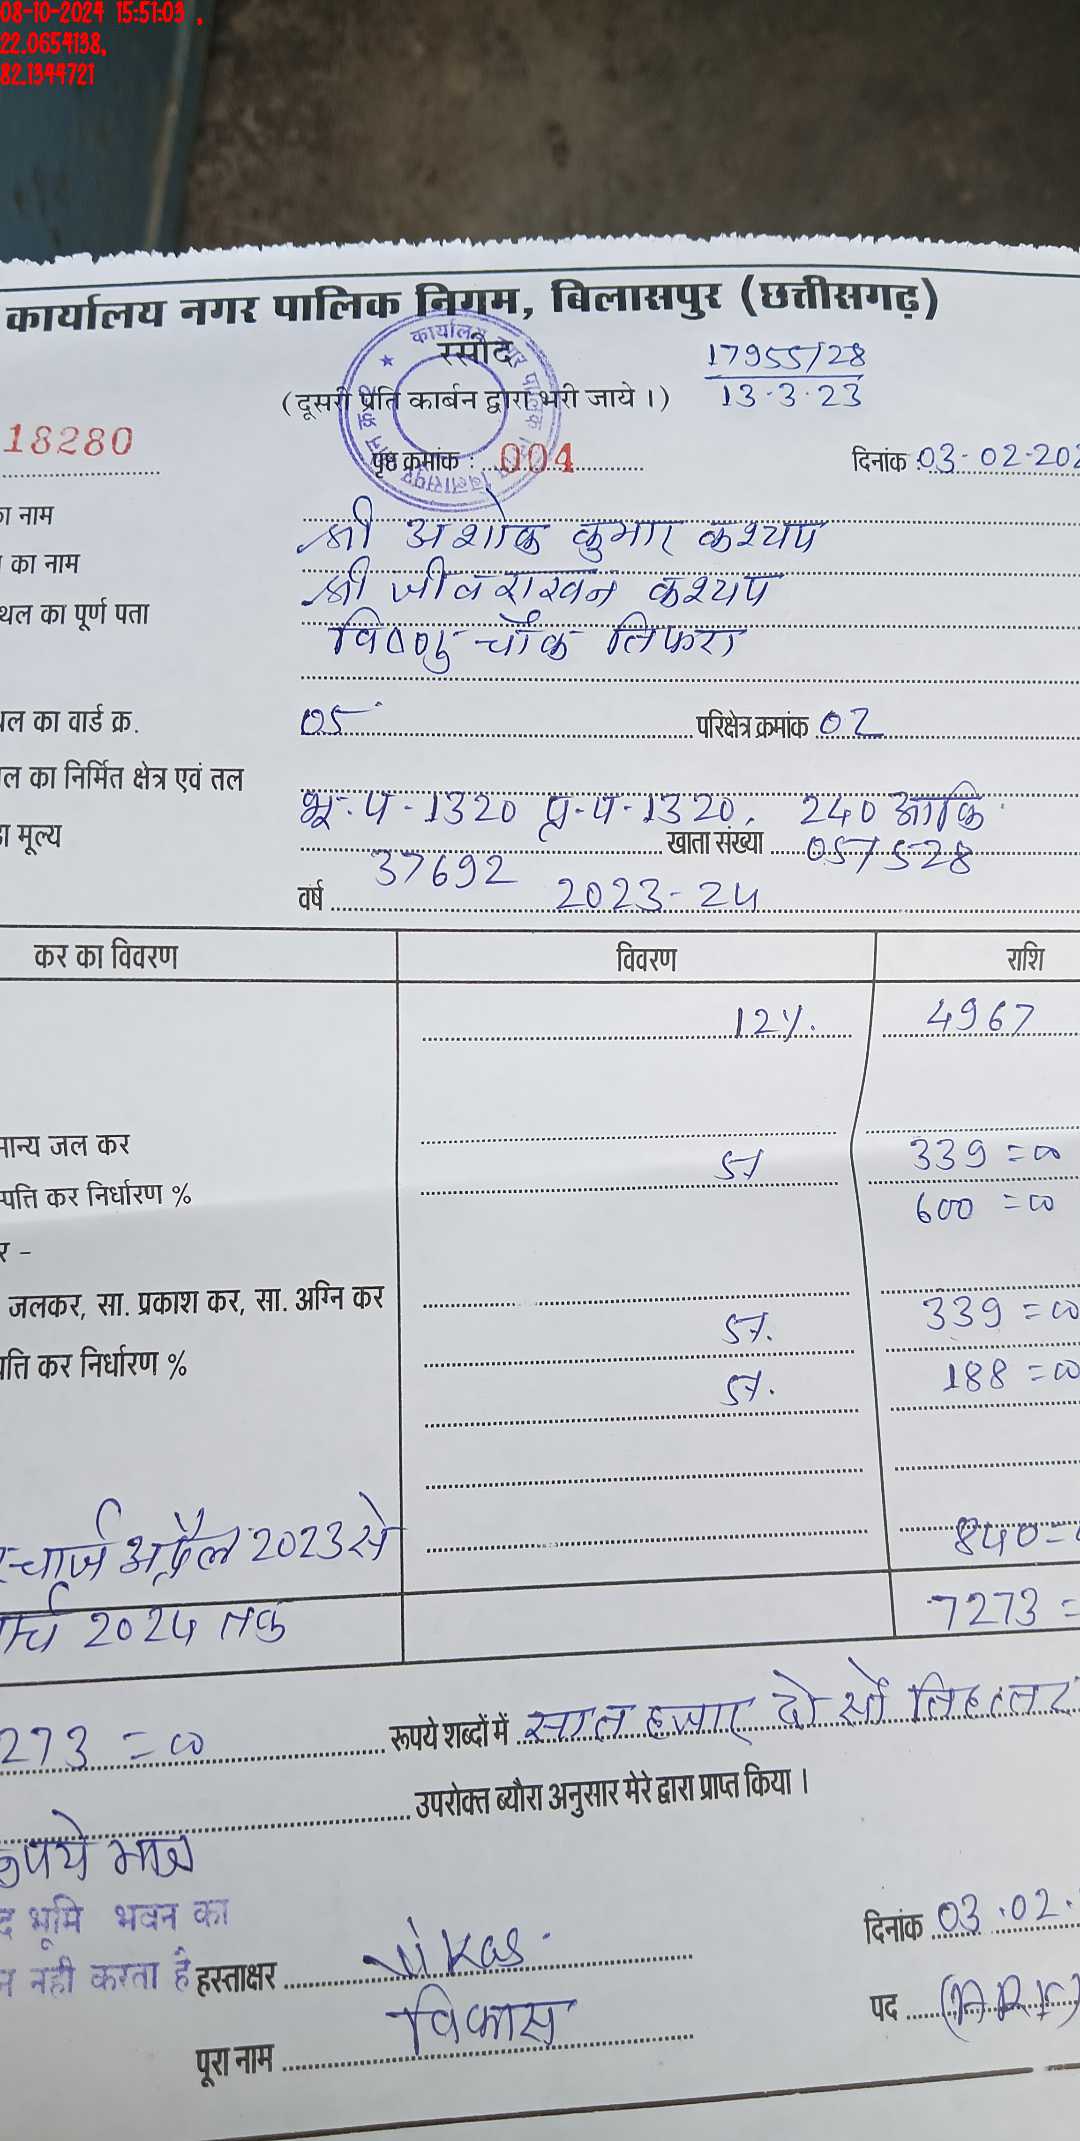 08-10-2024 15:51:03 ,
22.0654138,
82.1344721
कार्यालय नगर पालिक निगम, बिलासपुर (छत्तीसगढ़)
रसीद
17955/28
(दूसरी प्रति कार्बन द्वारा भरी जाये ।)
13.3.23
18280
पृष्ठ क्रमांक : 004 दिनांक 03-02-202
ा नाम श्री अशोक कुमार कश्यप
का नाम श्री जीवराखन कश्यप
थल का पूर्ण पता विष्णु चौक तिफरा
थल का वार्ड क्र. 05 परिक्षेत्र क्रमांक 02
ल का निर्मित क्षेत्र एवं तल भू.प-1320 प्र.प-1320, 240
ा मूल्य 37692 खाता संख्या 057528
वर्ष 2023-24
कर का विवरण विवरण राशि
12%. 4967
मान्य जल कर
म्पत्ति कर निर्धारण % 339=00
600=00
र -
जलकर, सा. प्रकाश कर, सा. अग्नि कर 339=00
पत्ति कर निर्धारण % 188=00
चार्ज अप्रैल 2023 से 840=
मार्च 2024 तक 7273=
273=00 रूपये शब्दों में सात हजार दो सौ तिहत्तर
उपरोक्त ब्यौरा अनुसार मेरे द्वारा प्राप्त किया ।
रूपये मात्र
द भूमि भवन का
न नही करता है
दिनांक 03.02.
हस्ताक्षर Vikas.
पद (ARI)
पूरा नाम विकास